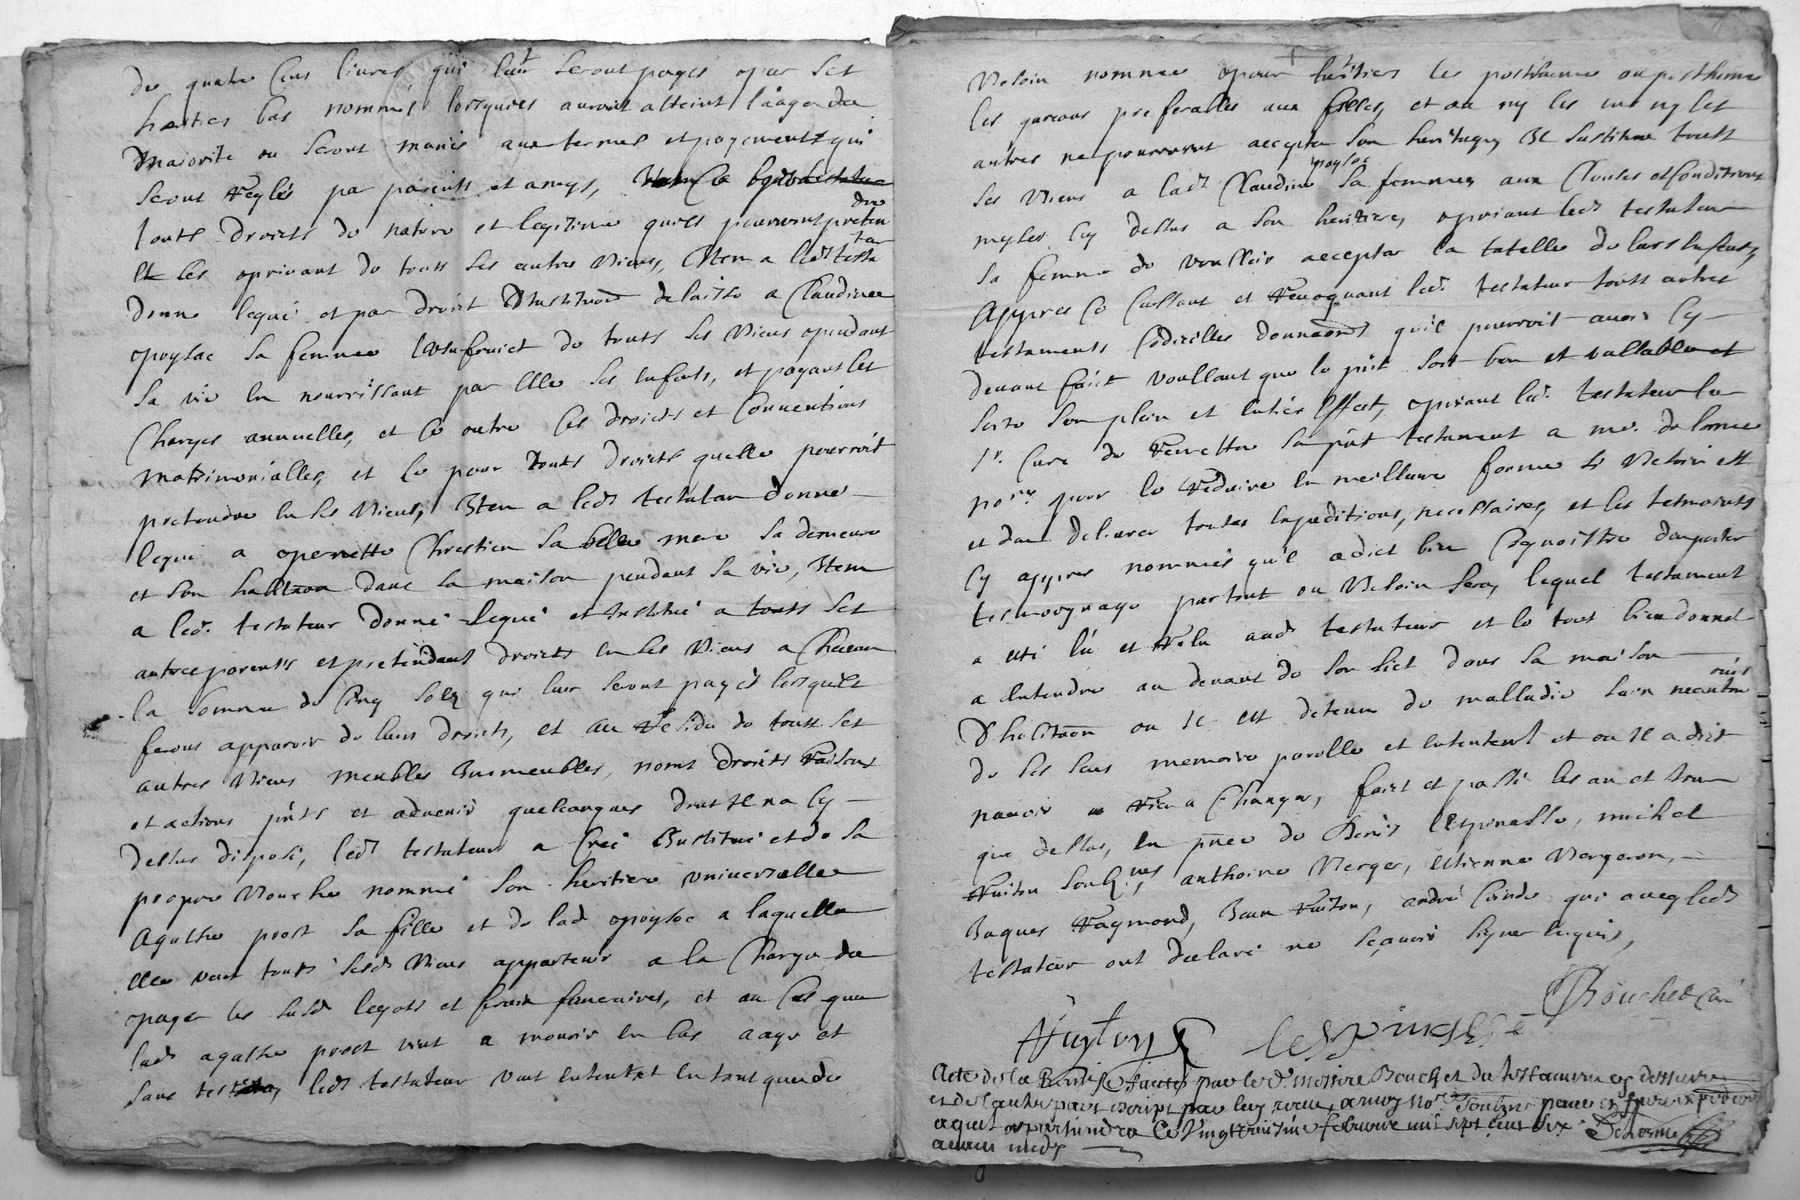 de quatre cens livres qui leur seront payés par ses
heritiers bas nommés lorsquils auront atteint l'aage de
majorité ou seront mariés aux termes et payements qui
seront reglés par parents et amys,
touts droicts de nature et legitime quils pourroient preten
dre
et les privant de touts ses autres biens, Item a led. testa
teur
donné legué et par droict d'Institution delaissé a Claudine
poysac sa femme l'usufruict de touts ses biens pendant
sa vie en nourrissant par elle ses enfants, et payant les
charges annuelles, et ce outre ses droicts et conventions
matrimonialles, et ce pour touts droicts quelle pourroit
pretendre en ses biens, Item a led. testateur donné
legué a pernette Chrestien sa belle mere sa demeure
et son habitaon dans la maison pendant sa vie, Item
a led. testateur donné legué et Institué a touts ses
autres parents et pretendant droicts en ses biens a chacun
la somme de cinq solz qui leur seront payés lorsquils
feront apparoir de leurs droicts, et au residu de touts ses
autres biens meubles Immeubles, noms droicts raisons
et actions pnts et advenir quelconques dont Il na cy
dessus disposé, led. testateur a creé Institué et de sa
propre bouche nommé son heritiere universelle
Agathe prost sa fille et de lad. poysac a laquelle
elle veut touts sesd. biens appartenir a la charge de
payer les susd. legats et frais funeraires, et au cas que
lad. agathe prost vint a mourir en bas aage et
sans tester, led. testateur veut entend et en tant que de
besoin nomme pour heritiers les posthume ou posthume
les garcons preferables aux filles, et au cas ny les uns ny les
autres ne pourroient accepter son heritage, Il substitue touts
ses biens a lad. Claudine poysac sa femme, aux clauses et conditions
myses cy dessus a son heritiere, priant led. testateur
sa femme de voulloir accepter la tutelle de leurs enfants,
Appres ce cassant et revoquant led. testateur touts autres
testaments codicilles donnaons quil pourroit avoir cy
devant faict voullant que le pnt soit bon et vallable et
sorte son plein et entier effect, priant led. testateur le
sr. Curé de remettre son pnt testament a me. delorme
nore pour le reduire en meilleure forme si besoin est
et den delivrer toutes expeditions necessaires, et les tesmoints
cy appres nommés qu'il a dict bien cognoistre d'en porter
tesmoignage partout ou besoin sera, lequel testament
a esté lû et relu aud. testateur et le tout bien donné
a entendre au devant de son lict dans sa maison
d'habitaon ou Il est detenu de malladie sain neantm
oins
de ses sens memoire parolle et entendemt et ou Il a dict
navoir rien a changer, faict et passé les an et jour
que dessus, en pnce de Denis lespinasse, michel
Vuiton soubznés, anthoine Verger, estienne Vergeron,
Jaques raymond, Jean Vuiton, andré Coindre qui avec led.
testateur ont declaré ne sçavoir signer enquis,
Bouchet curé
Vuyton lespinasse
Acte de la Remise faicte par le Sr. messire Bouchet du testament cy dessus
et de l'autre part escript par luy receu, a moy nore soubzné pour
a qui il appartiendra Ce vingt troisiesme febvrier mil sept cens dix Delorme